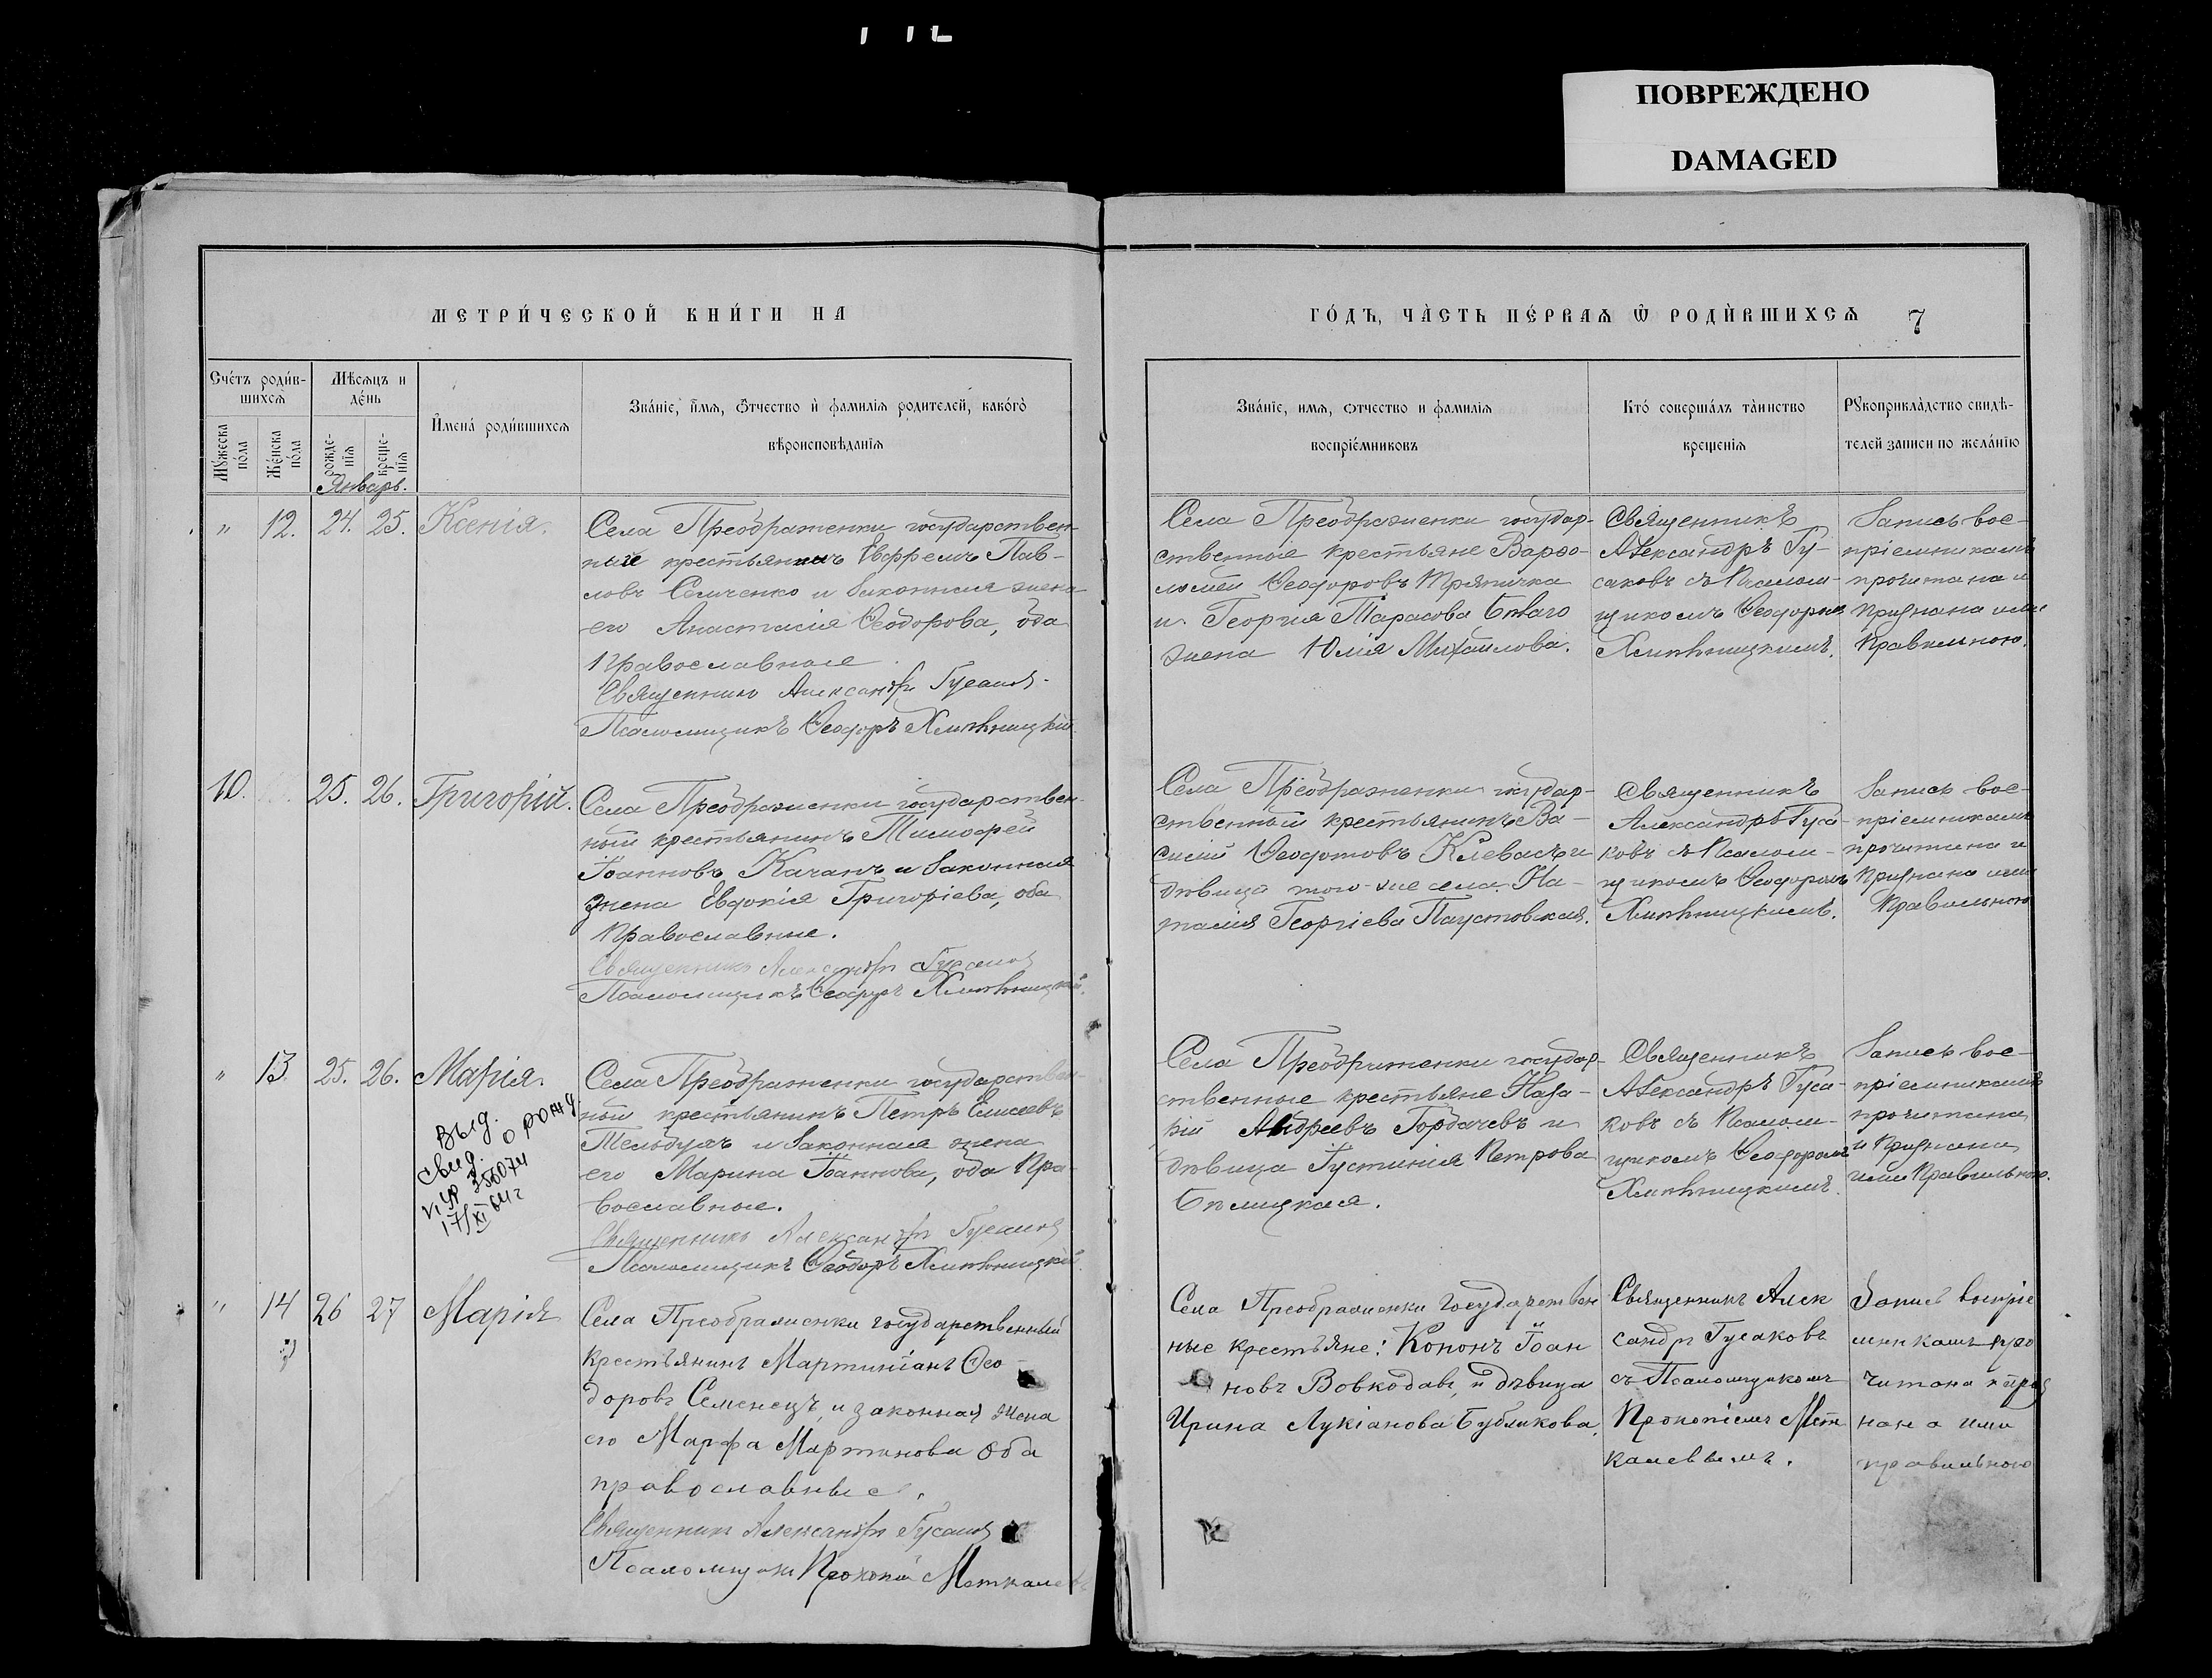 ПОВРЕЖДЕНО
DAMAGED
МЕТРИ́ЧЕСКОЙ КНИ́ГИ НА
ГО́ДЪ, ЧА̀СТЬ ПЕ́РВАѦ Ѿ РОДЍВШИХСѦ 7
Счéтъ роди́в-
шихсѧ
Мѣ́сѧцъ и
дéнь
И҆мена̀ роди́вшихсѧ
Звáнїе, и҆́мѧ, ѻ҆́тчество и҆ фамилїѧ родителей, какóгѡ
вѣроисповѣданїѧ
Мꙋ́жеска
пóла
Жéнска
пóла
рожде-
нїѧ
креще-
нїѧ
Январь.
Звáнїе, имѧ, ѻтчество и фамилїѧ
воспрїéмниковъ
Ктó совершáлъ тàинство
крещенїѧ
Рꙋкоприклàдство свидѣ-
телей записи по желáнїю
" 12. 24. 25. Ксенія.
Села Преображенки государствен-
ные крестьянинъ Евфремъ Пав-
ловъ Семченко и законная жена
его Анастасія Ѳеодорова, оба
Православные.
Священникъ Александръ Гусаковъ
Псаломщикъ Ѳеодоръ Хмѣльницкій
Села Преображенки государ-
ственные крестьяне Варѳо-
ломей Ѳеодоровъ Тряпичка
и Георгія Тарасова Бѣлаго
жена Юлія Михайлова.
Священникъ
Александръ Гу-
саковъ съ Псалом-
щикомъ Ѳеодоромъ
Хмѣльницкимъ.
Запись вос-
пріемниками
прочитана и
признана ими
Правильною.
10. 25. 26. Григорій.
Села Преображенки государствен-
ный крестьянинъ Тимофей
Іоанновъ Качанъ и законная
жена Евдокія Григоріева, оба
Православные.
Священникъ Александръ Гусаковъ
Псаломщикъ Ѳеодоръ Хмѣльницкій.
Села Преображенки государ-
ственный крестьянинъ Ва-
силій Ѳеодотовъ Клевасъ и
дѣвица того-же села На-
талія Георгіева Паустовская.
Священникъ
Александръ Гуса-
ковъ съ Псалом-
щикомъ Ѳеодоромъ
Хмѣльницкимъ.
Запись вос-
пріемниками
прочитана и
признана ими
Правильною
" 13. 25. 26. Марія.
Выд.
свид. о рожд.
VI УР 356074
17/XI 64 г
Села Преображенки государствен-
ный крестьянинъ Петръ Елисеевъ
и законная жена
его Марина Іоаннова, оба Пра-
вославные.
Священникъ Александръ Гусаковъ
Псаломщикъ Ѳеодоръ Хмѣльницкій.
Села Преображенки государ-
ственные крестьяне Наза-
рій Андреевъ Горбачевъ и
дѣвица Іустинія Петрова
Бѣлицкая.
Священникъ
Александръ Гуса-
ковъ съ Псалом-
щикомъ Ѳеодоромъ
Хмѣльницкимъ.
Запись вос-
пріемниками
прочитана
и признана
ими Правильною.
" 14 26 27 Марія
Села Преображенки государственный
крестьянинъ Мартиніанъ Ѳео-
доровъ Семенецъ, и законная жена
его Марфа Мартинова оба
православные.
Священникъ Александръ Гусаковъ
Псаломщикъ Прокопій Меткалевъ
Села Преображенки государствен
ные крестьяне: Кононъ Іоан
новъ Вовкодавъ, и дѣвица
Ирина Лукіанова Бубликова.
Священникъ Алек
сандръ Гусаковъ
съ Псаломщикомъ
Прокопіемъ Мет
калевымъ.
Запись воспріе
мниками про
читана и приз
нана ими
правильною